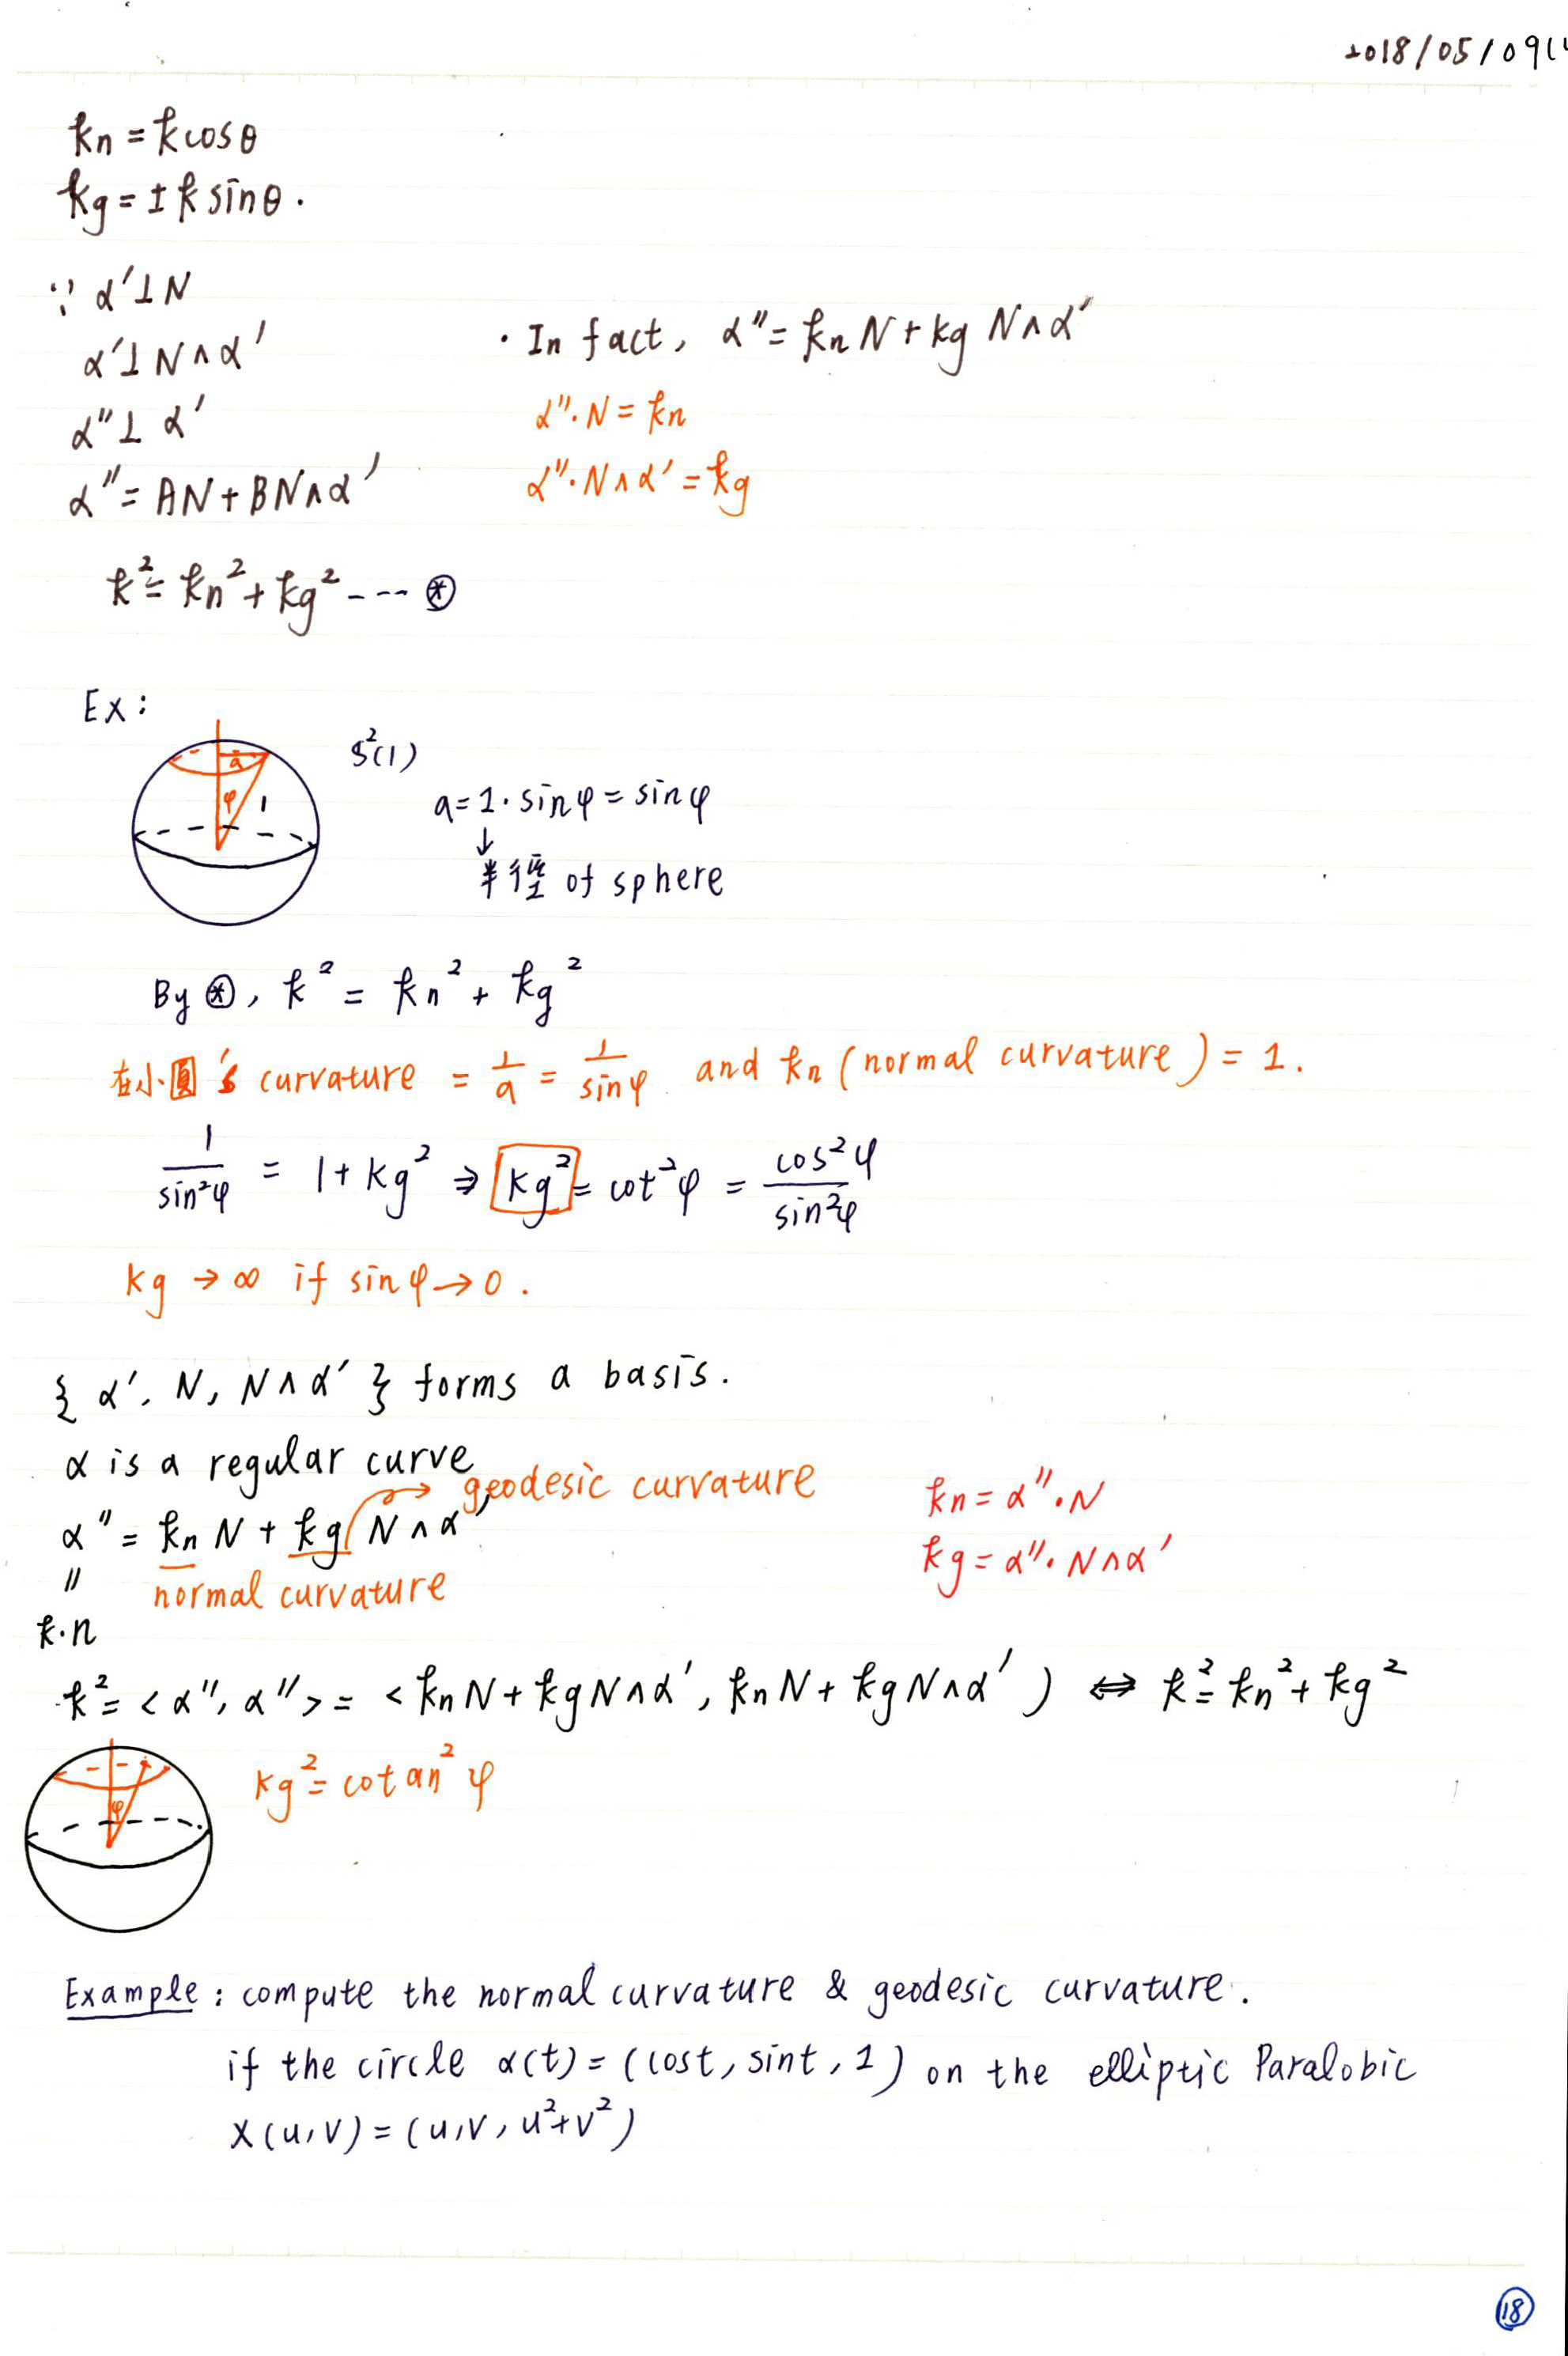 2018/05/09(
kn = kcosθ
kg = ± k sinθ.
∵ α'⊥N
α'⊥N∧α'
α''⊥ α'
α'' = AN + BN∧α'
· In fact, α'' = kn N + kg N∧α'
α''·N = kn
α''·N∧α' = kg
k² = kn² + kg² ---- ⊛
Ex:
S²(1)
a
φ
1
a = 1·sinφ = sinφ
↓
半徑 of sphere
By ⊛, k² = kn² + kg²
在小圓's curvature = 1/a = 1/sinφ and kn (normal curvature) = 1.
1/sin²φ = 1 + kg² ⇒ kg² = cot²φ = cos²φ/sin²φ
kg → ∞ if sinφ → 0.
{ α', N, N∧α' } forms a basis.
α is a regular curve
→ geodesic curvature
α'' = kn N + kg N∧α'
〃 normal curvature
k·n
kn = α''·N
kg = α''·N∧α'
k² = <α'', α''> = <kn N + kg N∧α', kn N + kg N∧α') ⇔ k² = kn² + kg²
φ
kg² = cotan²φ
Example : compute the normal curvature & geodesic curvature.
if the circle α(t) = (cost, sint, 1) on the elliptic Paralobic
X(u,v) = (u,v, u²+v²)
18